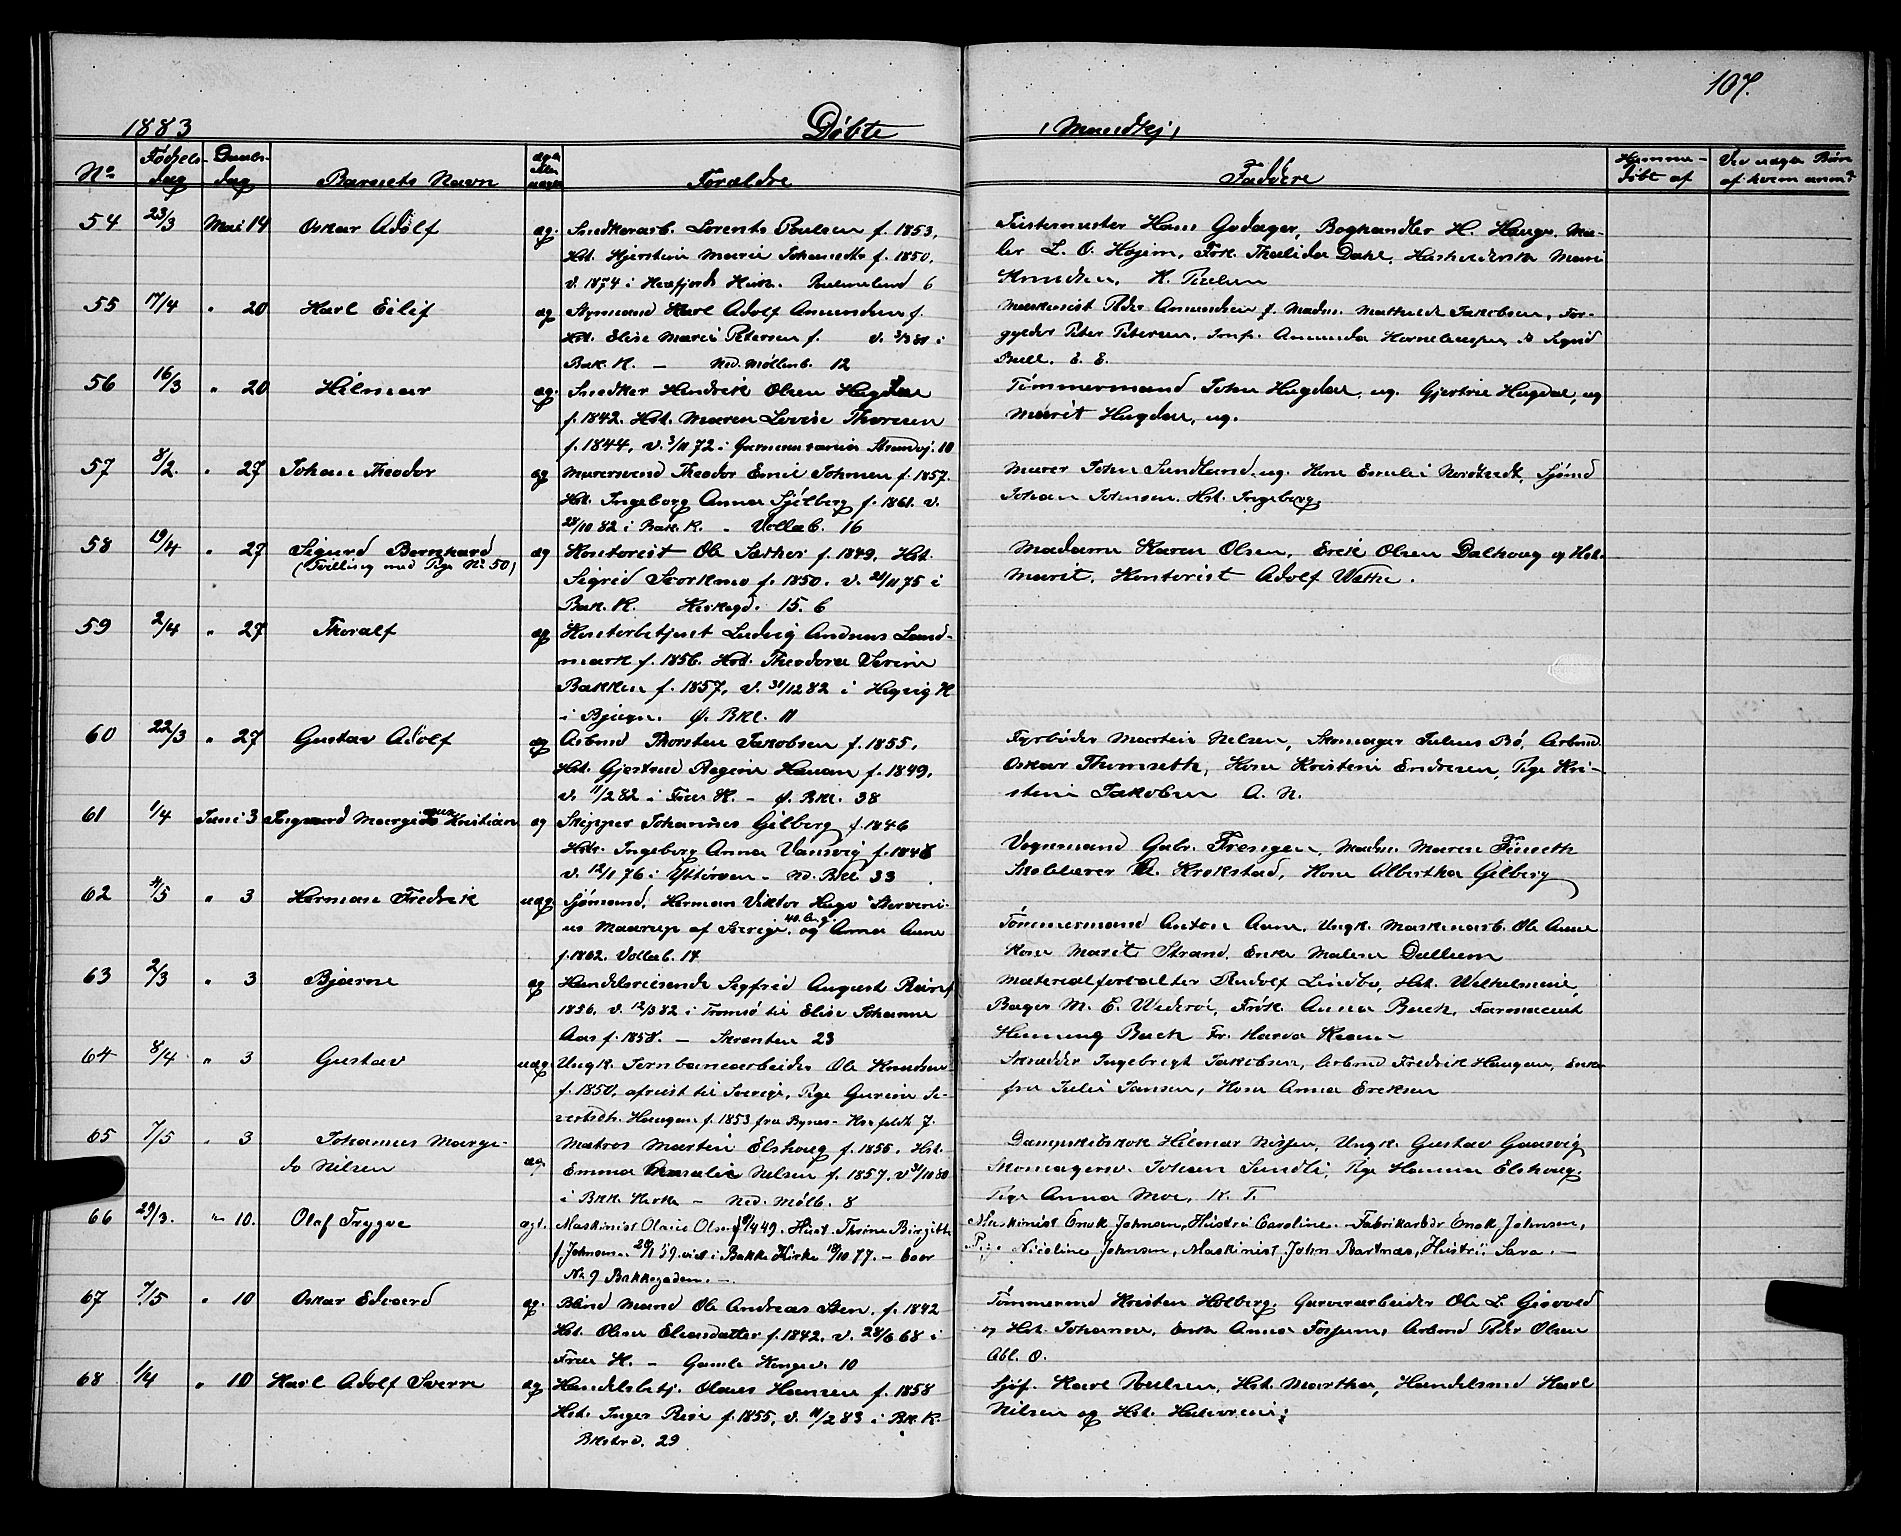 107.
1883 Døbte (Mandkj)
No Fødselsdag Daabsdag Barnets Navn ægte eller uægte Forældre Faddere Hjemmedøbt af Ved uægte Børn af hvem anmdt
54 23/3 Mai 14 Oskar Adolf æg. Snedkerarb. Lorents Poulsen f. 1853,
Hst. Kjerstine Marie Johansdtr f. 1850,
v. 1874 i Kirke. 6
Hans Godager, Boghandler H. Hauge, Ma-
ler L. O. Hojem, Frk. Thalida Dahl, Husholderske Mari
Knudsen, K. Poulsen
55 17/4 " 20 Karl Eilif æg Styrmand Karl Adolf Amundsen f.
Hst. Elise Marie Petersen f. v. 2/3 81 i
Bak. K. — Ned. Møllenb. 12
Maskinist Peder Amundsen, Madm. Mathilde Jakobsen, For-
gylder Peter Petersen, Jomf. Amanda Sigrid
Bull. E. E.
56 16/3 " 20 Hilmar æg. Snedker Hendrik Olsen Hugdal
f. 1842. Hst. Maren Lovise Thoresen
f. 1844, v. 3/11 72 i Strandvj. 10
Tømmermand John Hugdal, ug. Gjertrue Hugdal, ug
Marit Hugdal, ug.
57 8/2. " 27 Johan Theodor æg Murersvend Theodor Emil Johnsen f. 1857.
Hst. Ingeborg Anna Sjølberg f. 1861. v.
28/10 82 i Bak. K. - Vollab. 16
Murer John Sundland, ug. Kone Emilie Nordtvedt, Sjømd
Johan Johnsen. Hst. Ingeborg
58 19/4 " 27 Sigurd Bernhard
(Tvilling med Pige No 50) æg Kontorist Ole Sæther f. 1849, Hst.
Sigrid Storkmo f. 1850. v. 28/11 75 i
Bak. K. Kirkegd. 15. 6
Madame Karen Olsen, Erik Olsen Dalhoug og Hst.
Marit, Kontorist Adolf Wette.
59 2/4 " 27 Thoralf æg Kontorbetjent Ludvig Andreas Land-
mark f. 1856. Hst. Theodora Serine
Bakken f. 1857, v. 31/12 82 i Hegvig K
i Bjugn. Ø. Bkl. 11
60 22/3 " 27 Gustav Adolf æg Arbmd Thorsten Jakobsen f. 1855,
Hst. Gjertrud Regine Hanan f. 1849,
v. 11/2 82 i Frue K. - Ø. Bkl. 38
Fyrbøder Martin Nilsen, Skomager Julius Bø, Arbmd.
Oskar Thomseth, Kone Kristine Endresen, Pige Kri-
stine Jakobsen A. N.
61 1/4 Juni 3 Ingvard Margido Kristian æg Skipper Johannes Gilberg f. 1846
Hst. Ingeborg Anna Vansvig f. 1848
v. 12/11 76 i Ytterøen - Nd. Bkl 33
Vognmand Gabr. Frengen, Madm. Maren Finseth
Skolelærer O. Krokstad, Kone Albertha Gilberg
62 4/5 " 3 Herman Fredrik uæg. Sjømand, Herman Viktor Hugo
Maarup af Sverige, 40. Aug. og Anna Aune
f. 1862. Vollab. 14
Tømmermand Anton Aune, Ungk. Maskinarb. Ole Aune
Kone Marit Strand, Enke Malene Dullum
63 2/3 " 3 Bjarne æg Handelsreisende Sigfrid August Rein f
1856, v. 12/3 82 i Tromsø til Elise Johanne
Aas f. 1858. — Skrænten 23
Materialforvalter Rudolf Lindbo, Hst. Wilhelmine,
Bager M. E. Widerøe, Frøk. Anna Buck, Farmaceut
Henning Buck Fr.
64 8/4 " 3 Gustav uæg Ungk. Jernbanearbeider Ole Knudsen
f. 1850, afreist til Sverige, Pige Gurine Si-
vertsdtr. Haugan f. 1853 fra Bynes - 7.
Skrædder Ingebrigt Jakobsen, Arbmd Fredrik Haugan, Enke-
fru Julie Jansen, Kone Anna Eriksen
65 7/5 " 3 Johannes Margi-
do Nilsen æg. Matros Martin Elshoug f. 1855. Hst.
Emma Amalie Nilsen f. 1857. v. 31/10 80
i Bkk. Kirke — Ned. Mølb. 8
Dampskibskok Hilmar Ungk. Gustav Gaasvig
Skomagersv. Johan Sundli, Pige Hanna Elshoug,
Pige Anna Moe, K. T.
66 29/3. " 10. Olaf Trygve ægt. Maskinist Olaus Olsen f 9/4 49. Hust. Thrine Birgitte
f. Johnsen 28/1 59. viet i Bakke Kirke 18/10 77. — Boer
No 9 Bakkegaden. —
Maskinist Enok Johnsen, Hustru Caroline. Fabrikarbdr Enok Johnsen,
Pige Nicoline Johnsen, Maskinist John Bartnæs, Hustru Sara. —
67 7/5 " 10 Oskar Edvard æg. Blind Mand Ole Andreas Sten, f. 1842
Hst. Oline Eliasdatter f. 1842, v. 28/6 68 i
Frue K. — Gamle Kongev. 10
Tømmermd Kristen Holberg, Garverarbeider Ole L. Gisvold
og Hst. Johanna, Enke Anna Forsum, Arbmd Peder Olsen
Abl. O.
68 1/4 " 10 Karl Adolf Sverre æg Handelsbetj. Olaus Hansen f. 1858
Hst. Inger Rise f. 1855, v. 11/2 83 i Bk. K.
Bkstrd. 29
Sjøf. Karl Poulsen, Hst. Martha, Handelsmd Karl
Nilsen og Hst.